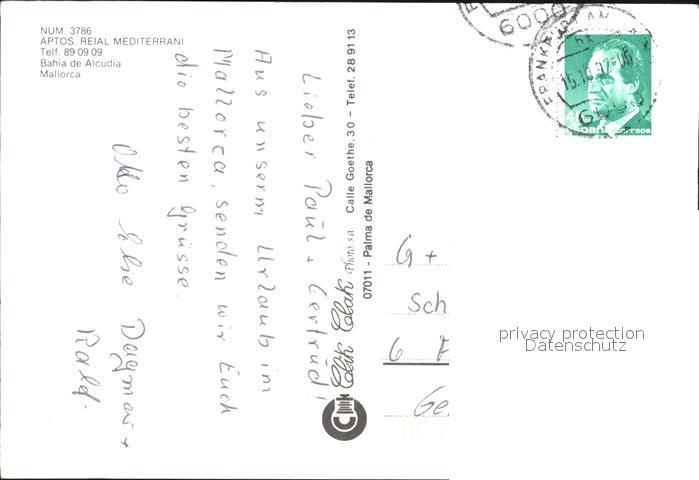 NUM. 3786
APTOS. REIAL MEDITERRANI
Telf. 89 09 09
Bahia de Alcudia
Mallorca
Lieber Paul + Gertrud!
Aus unserm Urlaub im
Mallorca, senden wir Euch
die besten Grüsse.
Otto Else Dagmar +
Ralf.
Clik Clak Photo, s.a. Calle Goethe, 30 – Telef. 28 91 13
07011 - Palma de Mallorca
G +
Sch
6 F
Ge
6000
FRANKFURT AM
15.10.
6000
España correos
privacy protection
Datenschutz